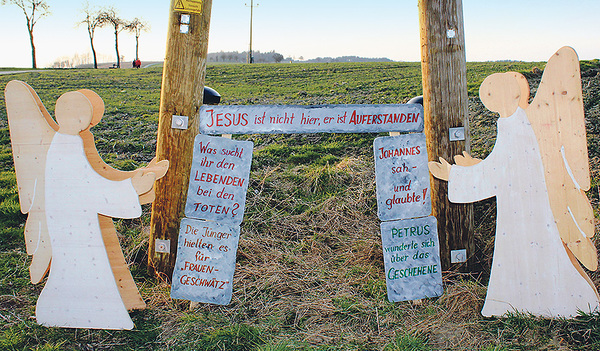 JESUS ist nicht hier, er ist AUFERSTANDEN
Was sucht
ihr den
LEBENDEN
bei den
TOTEN?
Die Jünger
hielten es
für
„FRAUEN-
GESCHWÄTZ"
JOHANNES
sah-
und
glaubte!
PETRUS
wunderte sich
über das
GESCHEHENE